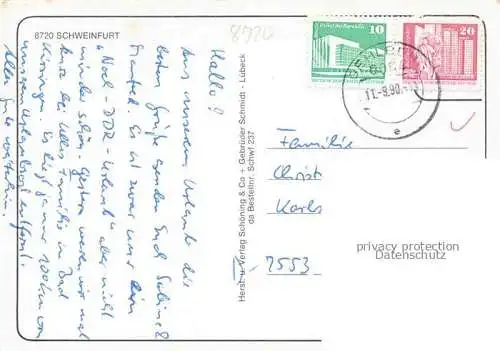 8720 SCHWEINFURT
8720
Hallo!
Aus unserem Urlaub die
besten Grüße senden Euch Sabine &
Manfred. Es ist zwar nur ein
"Noch-DDR-Urlaub" aber nicht
minder schön. Gestern waren wir mal
kurz bei Ullis Familie in Bad
Kissingen. Es liegt ja nur 100 km von
unserem Urlaubsort entfernt.
Alles Gute weiterhin.
Herst. u. Verlag Schöning & Co + Gebrüder Schmidt - Lübeck
da Bestellnr. Schwf 237
10
20
11.-9.90
e
Familie
Christ
Karls
7553
privacy protection
Datenschutz